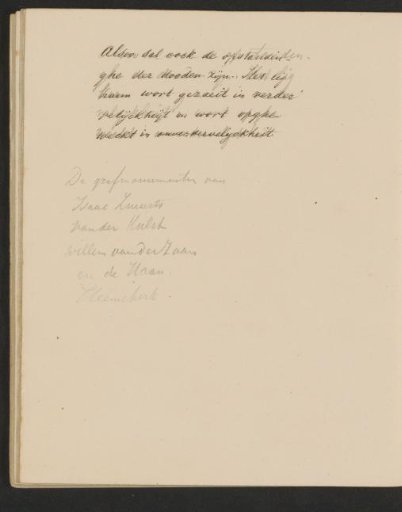 Alsoo sal oock de opstandin-
ghe der dooden zijn. Het lijc
haem wort gezaeit in verder
velijckheijt en wort opghe
weckt in onversterrvelijckheit
De grafmonumenten van
Isaac
van der Hulst
willem van der Zaan
en de Haan.
Heemskerk.